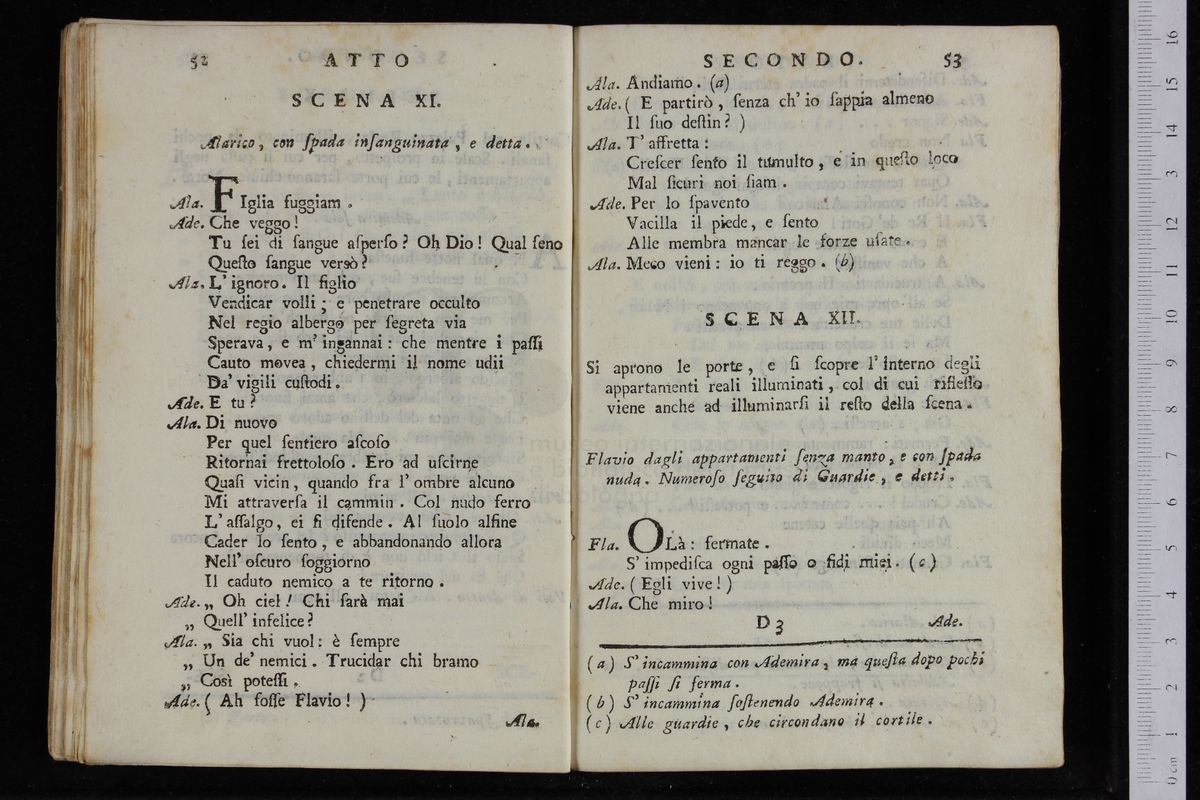 52 ATTO
SCENA XI.
Alarico, con ſpada inſanguinata, e detta.
Ala. FIglia fuggiam.
Ade. Che veggo!
Tu ſei di ſangue aſperſo? Oh Dio! Qual ſeno
Queſto ſangue versò?
Ala. L' ignoro. Il figlio
Vendicar volli; e penetrare occulto
Nel regio albergo per ſegreta via
Sperava, e m' ingannai: che mentre i paſſi
Cauto movea, chiedermi il nome udii
Da' vigili cuſtodi.
Ade. E tu?
Ala. Di nuovo
Per quel ſentiero aſcoſo
Ritornai frettoloſo. Ero ad uſcirne
Quaſi vicin, quando fra l' ombre alcuno
Mi attraverſa il cammin. Col nudo ferro
L' aſſalgo, ei ſi difende. Al ſuolo alfine
Cader lo ſento, e abbandonando allora
Nell' oſcuro ſoggiorno
Il caduto nemico a te ritorno.
Ade. „ Oh ciel! Chi ſarà mai
„ Quell' infelice?
Ala. „ Sia chi vuol: è ſempre
„ Un de' nemici. Trucidar chi bramo
„ Così poteſſi.
Ade. ( Ah foſſe Flavio! )
Ala.
SECONDO. 53
Ala. Andiamo. (a)
Ade. ( E partirò, ſenza ch' io ſappia almeno
Il ſuo deſtin? )
Ala. T' affretta:
Creſcer ſento il tumulto, e in queſto loco
Mal ſicuri noi ſiam.
Ade. Per lo ſpavento
Vacilla il piede, e ſento
Alle membra mancar le forze uſate.
Ala. Meco vieni: io ti reggo. (b)
SCENA XII.
Si aprono le porte, e ſi ſcopre l' interno degli
appartamenti reali illuminati, col di cui rifleſſo
viene anche ad illuminarſi il reſto della ſcena.
Flavio dagli appartamenti ſenza manto, e con ſpada
nuda. Numeroſo ſeguito di Guardie, e detti.
Fla. OLà: fermate.
S' impediſca ogni paſſo o fidi miei. (c)
Ade. ( Egli vive! )
Ala. Che miro!
D 3 Ade.
(a) S' incammina con Ademira, ma queſta dopo pochi
paſſi ſi ferma.
(b) S' incammina ſoſtenendo Ademira.
(c) Alle guardie, che circondano il cortile.
museo internazionale
e biblioteca
di bologna
0 cm 1 2 3 4 5 6 7 8 9 10 11 12 13 14 15 16